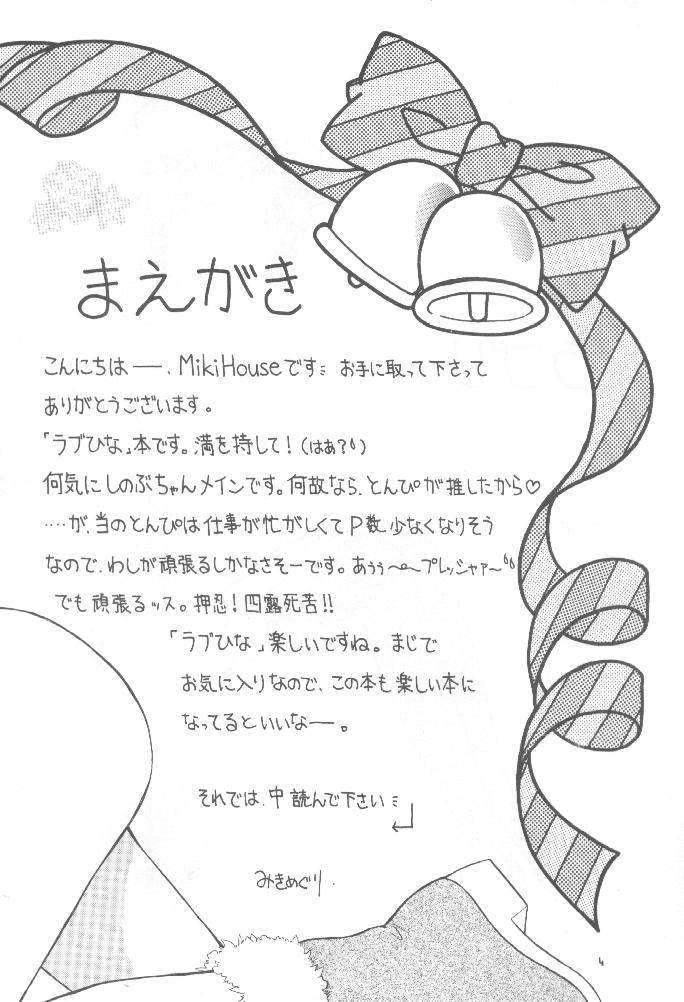 まえがき
こんにちはー、MikiHouseです お手に取って下さって
ありがとうございます。
「ラブひな」本です。満を持して!(はあ?)
何気にしのぶちゃんメインです。何故なら、とんぴが推したから♡
‥‥が、当のとんぴは仕事が忙がしくてP数少なくなりそう
なので、わしが頑張るしかなさそーです。あぅぅ〜〜プレッシャァ〜
でも頑張るッス。押忍!四露死苦!!
「ラブひな」楽しいですね。まじで
お気に入りなので、この本も楽しい本に
なってるといいなー。
それでは、中読んで下さい
みきめぐり.
4